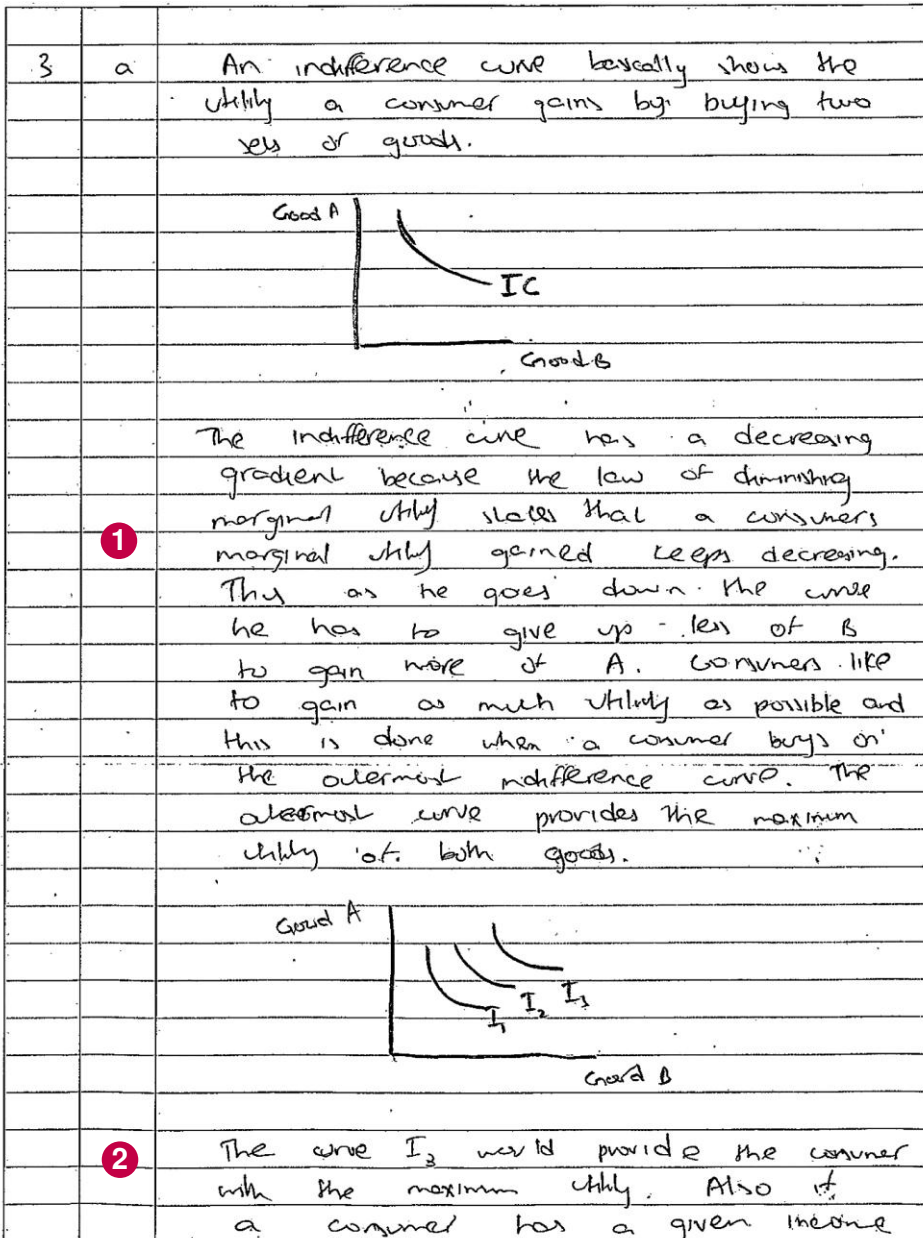 3 a An indifference curve basically shows the
utility a consumer gains by buying two
sets of goods.
Good A
IC
Good B
The indifference curve has a decreasing
gradient because the law of diminishing
marginal utility states that a consumers
1 marginal utility gained keeps decreasing.
Thus as he goes down the curve
he has to give up less of B
to gain more of A. Consumers like
to gain as much utility as possible and
this is done when a consumer buys on
the outermost indifference curve. The
outermost curve provides the maximum
utility of both goods.
Good A
I1 I2 I3
Good B
2 The curve I3 would provide the consumer
with the maximum utility. Also if
a consumer has a given income